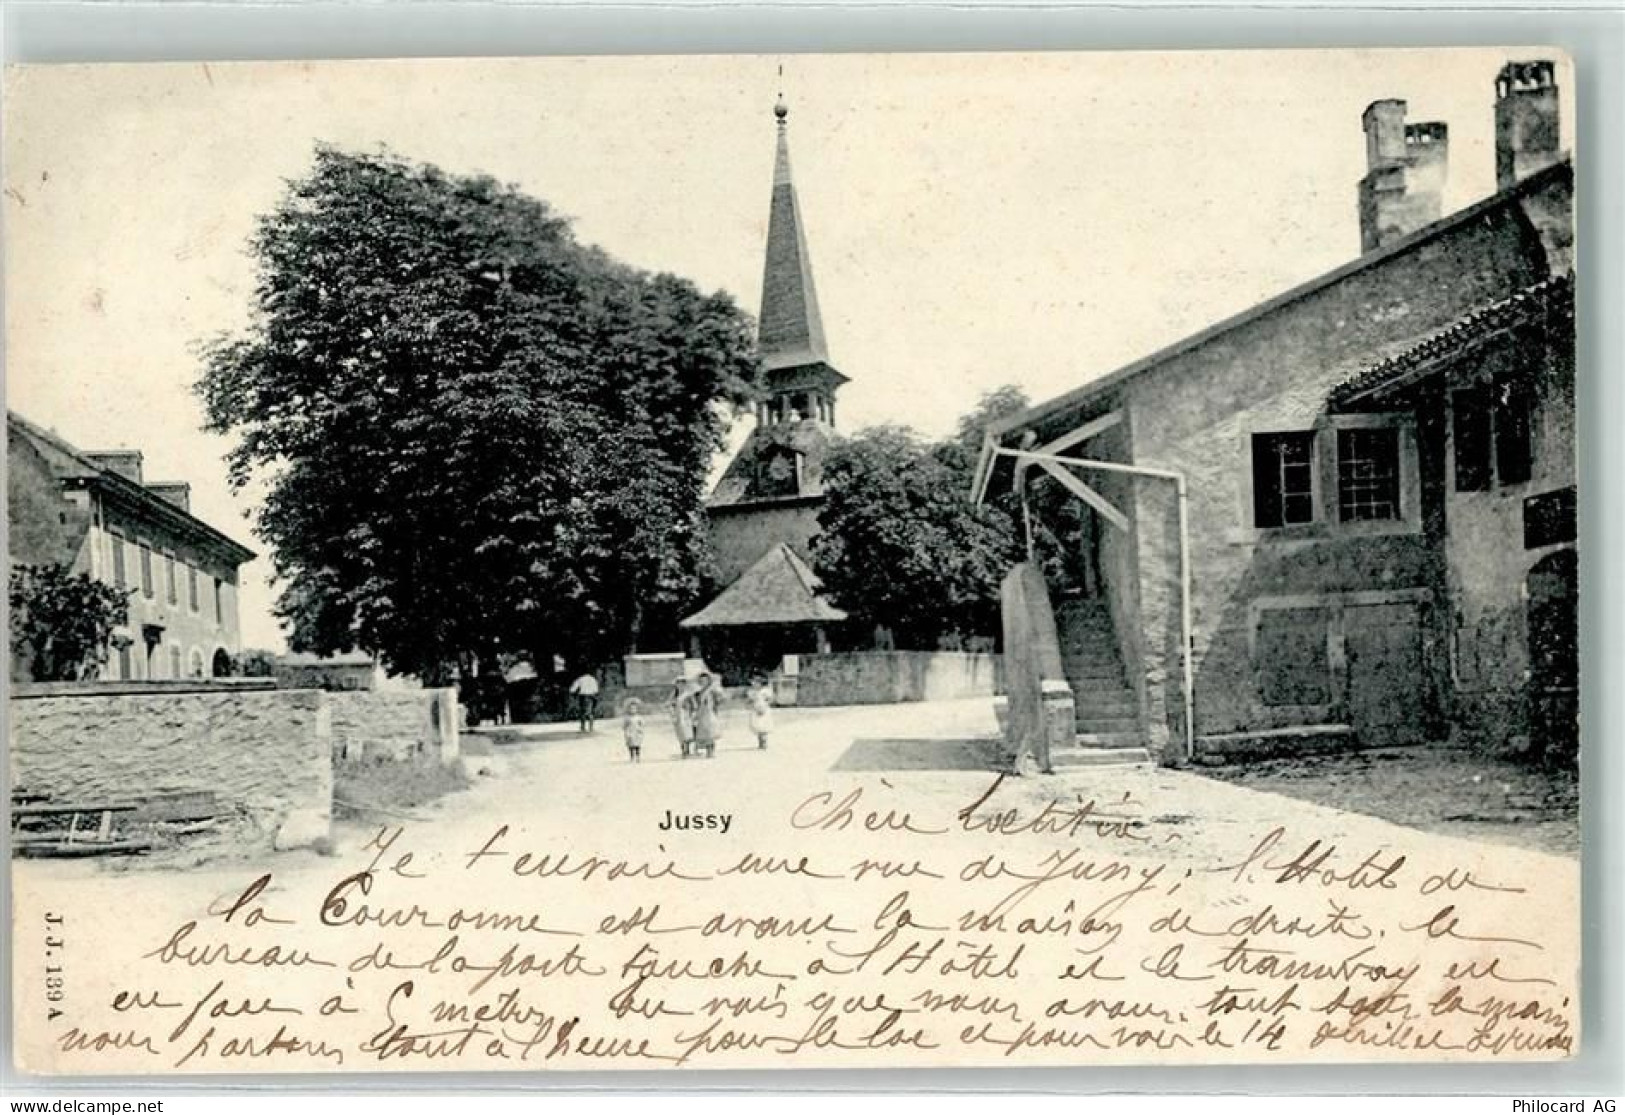 Jussy
Chère Laetitia.
Je t'envoie une vue de Jussy; l'Hotel de
la Couronne est avant la maison de droite. le
bureau de la poste touche à l'Hôtel et le tramway est
en face à 5 mètres. tu vois que nous avons tout sous la main
nous partons tout à l'heure pour le lac et pour voir le 14
J.J. 139 A
delcampe.net
Philocard AG